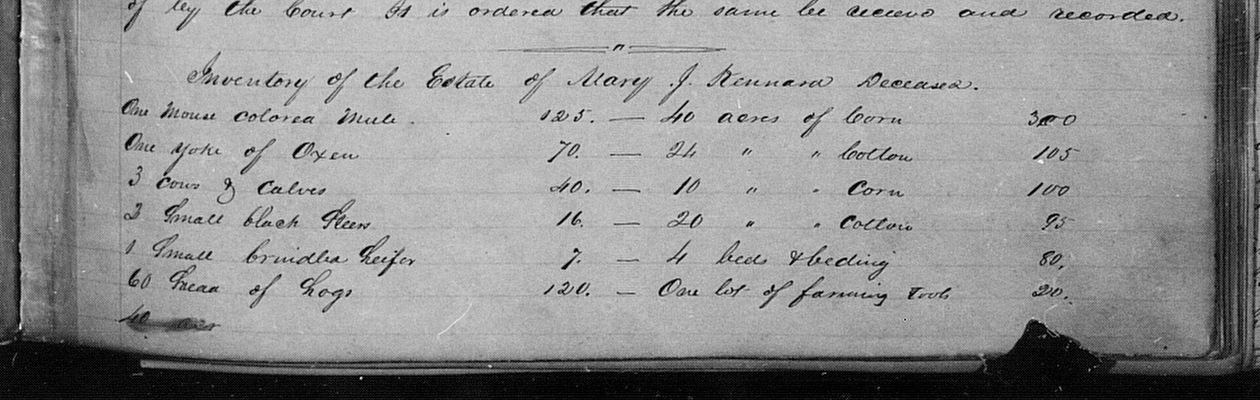 of by the Court It is ordered that the same be receivd and recorded.
"
Inventory of the Estate of Mary J. Kennard Deceased.
One mouse colored Mule. 125. — 40 acres of Corn 300
One yoke of Oxen 70. — 24 " " Cotton 105
3 cows & Calves 40. — 10 " " Corn 100
2 Small black Steers 16. — 20 " " Cotton 95
1 Small brindled heifer 7. — 4 beds & beding 80.
60 Head of hogs 120. — One lot of farming Tools 20.
40